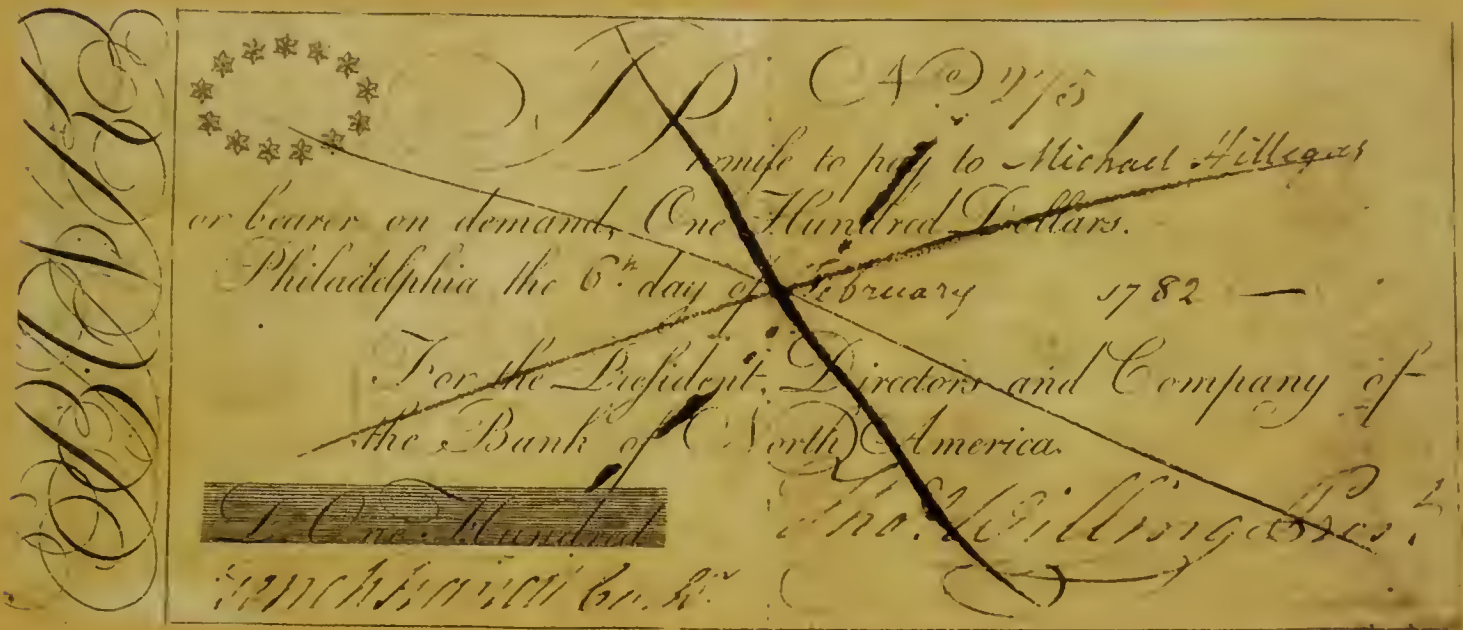 No. 275
I Promise to pay to Michael Hillegas
or bearer on demand, One Hundred Dollars.
Philadelphia the 6th. day of February 1782 —
For the President, Directors and Company of
the Bank of North America.
D. One Hundred
Tho. Willing Pres.t